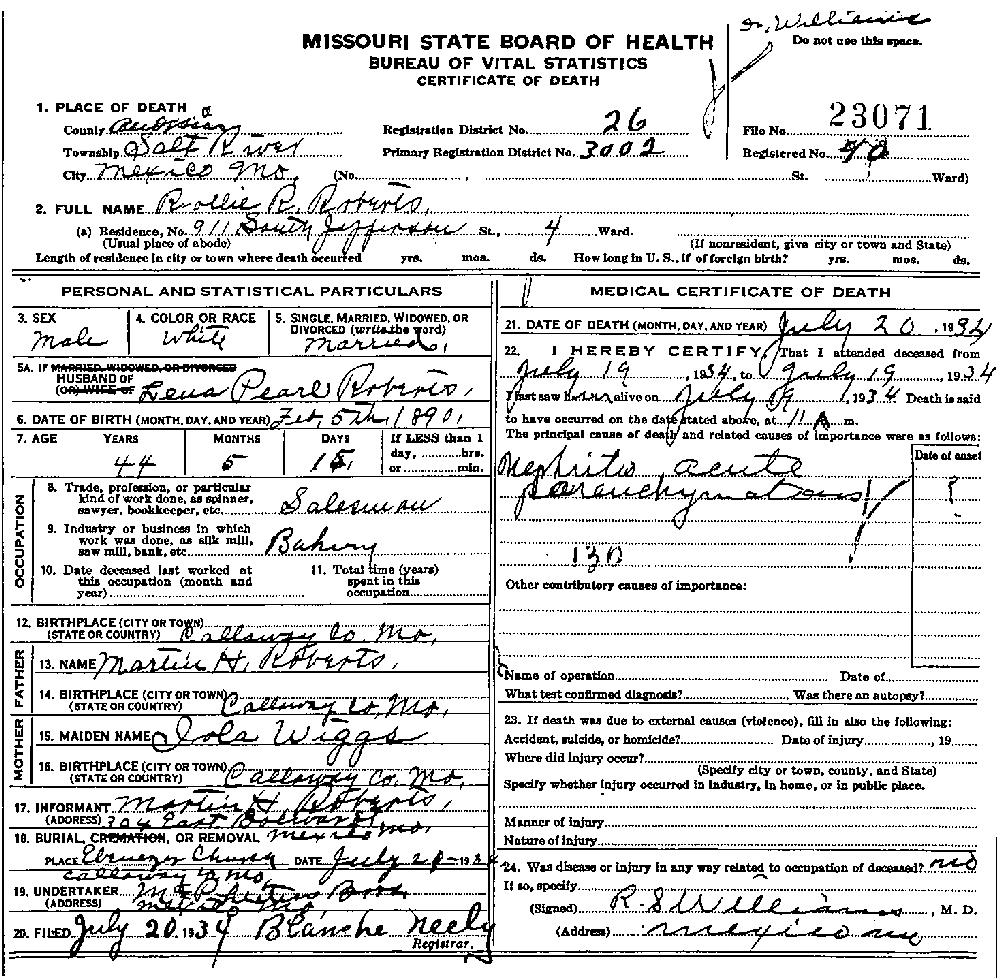 Dr. Williams
Do not use this space.
MISSOURI STATE BOARD OF HEALTH
BUREAU OF VITAL STATISTICS
CERTIFICATE OF DEATH
1. PLACE OF DEATH
County Audrain
Registration District No. 26
File No. 23071
Township Salt River
Primary Registration District No. 3002
Registered No.
City Mexico Mo. (No. , St. Ward)
2. FULL NAME Rollie R. Roberts,
(a) Residence, No. 911 South Jefferson St., 4 Ward.
(Usual place of abode) (If nonresident, give city or town and State)
Length of residence in city or town where death occurred yrs. mos. ds. How long in U. S., if of foreign birth? yrs. mos. ds.
PERSONAL AND STATISTICAL PARTICULARS
3. SEX Male
4. COLOR OR RACE White
5. SINGLE, MARRIED, WIDOWED, OR DIVORCED (write the word) Married,
5A. IF MARRIED, WIDOWED, OR DIVORCED
HUSBAND OF
(OR) WIFE OF Lena Pearl Roberts,
6. DATE OF BIRTH (MONTH, DAY, AND YEAR) Feb, 5th, 1890,
7. AGE YEARS MONTHS DAYS If LESS than 1
day, hrs.
or min.
44 5 15,
OCCUPATION
8. Trade, profession, or particular
kind of work done, as spinner,
sawyer, bookkeeper, etc. Salesman
9. Industry or business in which
work was done, as silk mill,
saw mill, bank, etc. Bakery
10. Date deceased last worked at
this occupation (month and
year)
11. Total time (years)
spent in this
occupation
12. BIRTHPLACE (CITY OR TOWN)
(STATE OR COUNTRY) Callaway Co, Mo,
FATHER
13. NAME Martin H. Roberts,
14. BIRTHPLACE (CITY OR TOWN)
(STATE OR COUNTRY) Callaway Co, Mo,
MOTHER
15. MAIDEN NAME Iola Wiggs
16. BIRTHPLACE (CITY OR TOWN)
(STATE OR COUNTRY) Callaway Co. Mo,
17. INFORMANT Martin H. Roberts,
(ADDRESS) 304 East Bolivard
Mexico Mo,
18. BURIAL, CREMATION, OR REMOVAL
PLACE Ebenezer Church DATE July 21-1934
Callaway Co Mo
19. UNDERTAKER
(ADDRESS) Mexico Mo
20. FILED July 20 1934 Blanche Neely
Registrar.
MEDICAL CERTIFICATE OF DEATH
21. DATE OF DEATH (MONTH, DAY, AND YEAR) July 20, 1934
22. I HEREBY CERTIFY, That I attended deceased from
July 19, 1934, to July 19, 1934
I last saw him alive on July 19, 1934 Death is said
to have occurred on the date stated above, at 11 A. m.
The principal cause of death and related causes of importance were as follows:
Date of onset
Nephritis acute
parenchymatous ?
130
Other contributory causes of importance:
Name of operation Date of
What test confirmed diagnosis? Was there an autopsy?
23. If death was due to external causes (violence), fill in also the following:
Accident, suicide, or homicide? Date of injury , 19
Where did injury occur?
(Specify city or town, county, and State)
Specify whether injury occurred in industry, in home, or in public place.
Manner of injury
Nature of injury
24. Was disease or injury in any way related to occupation of deceased? No
If so, specify
(Signed) R. S. Williams, M. D.
(Address) Mexico Mo